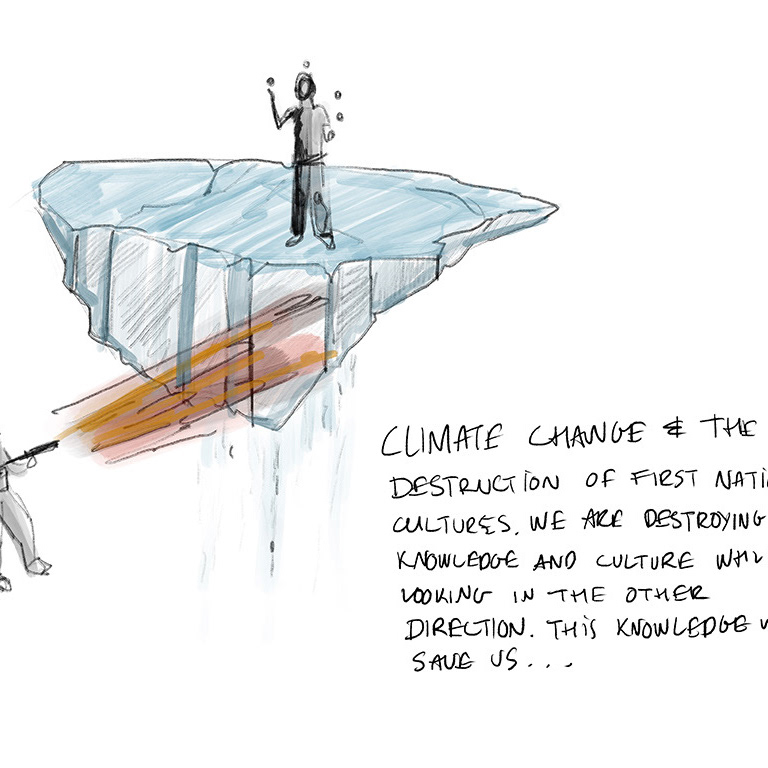 CLIMATE CHANGE & THE
DESTRUCTION OF FIRST NATI
CULTURES. WE ARE DESTROYING
KNOWLEDGE AND CULTURE WHIL
LOOKING IN THE OTHER
DIRECTION. THIS KNOWLEDGE
SAVE US...